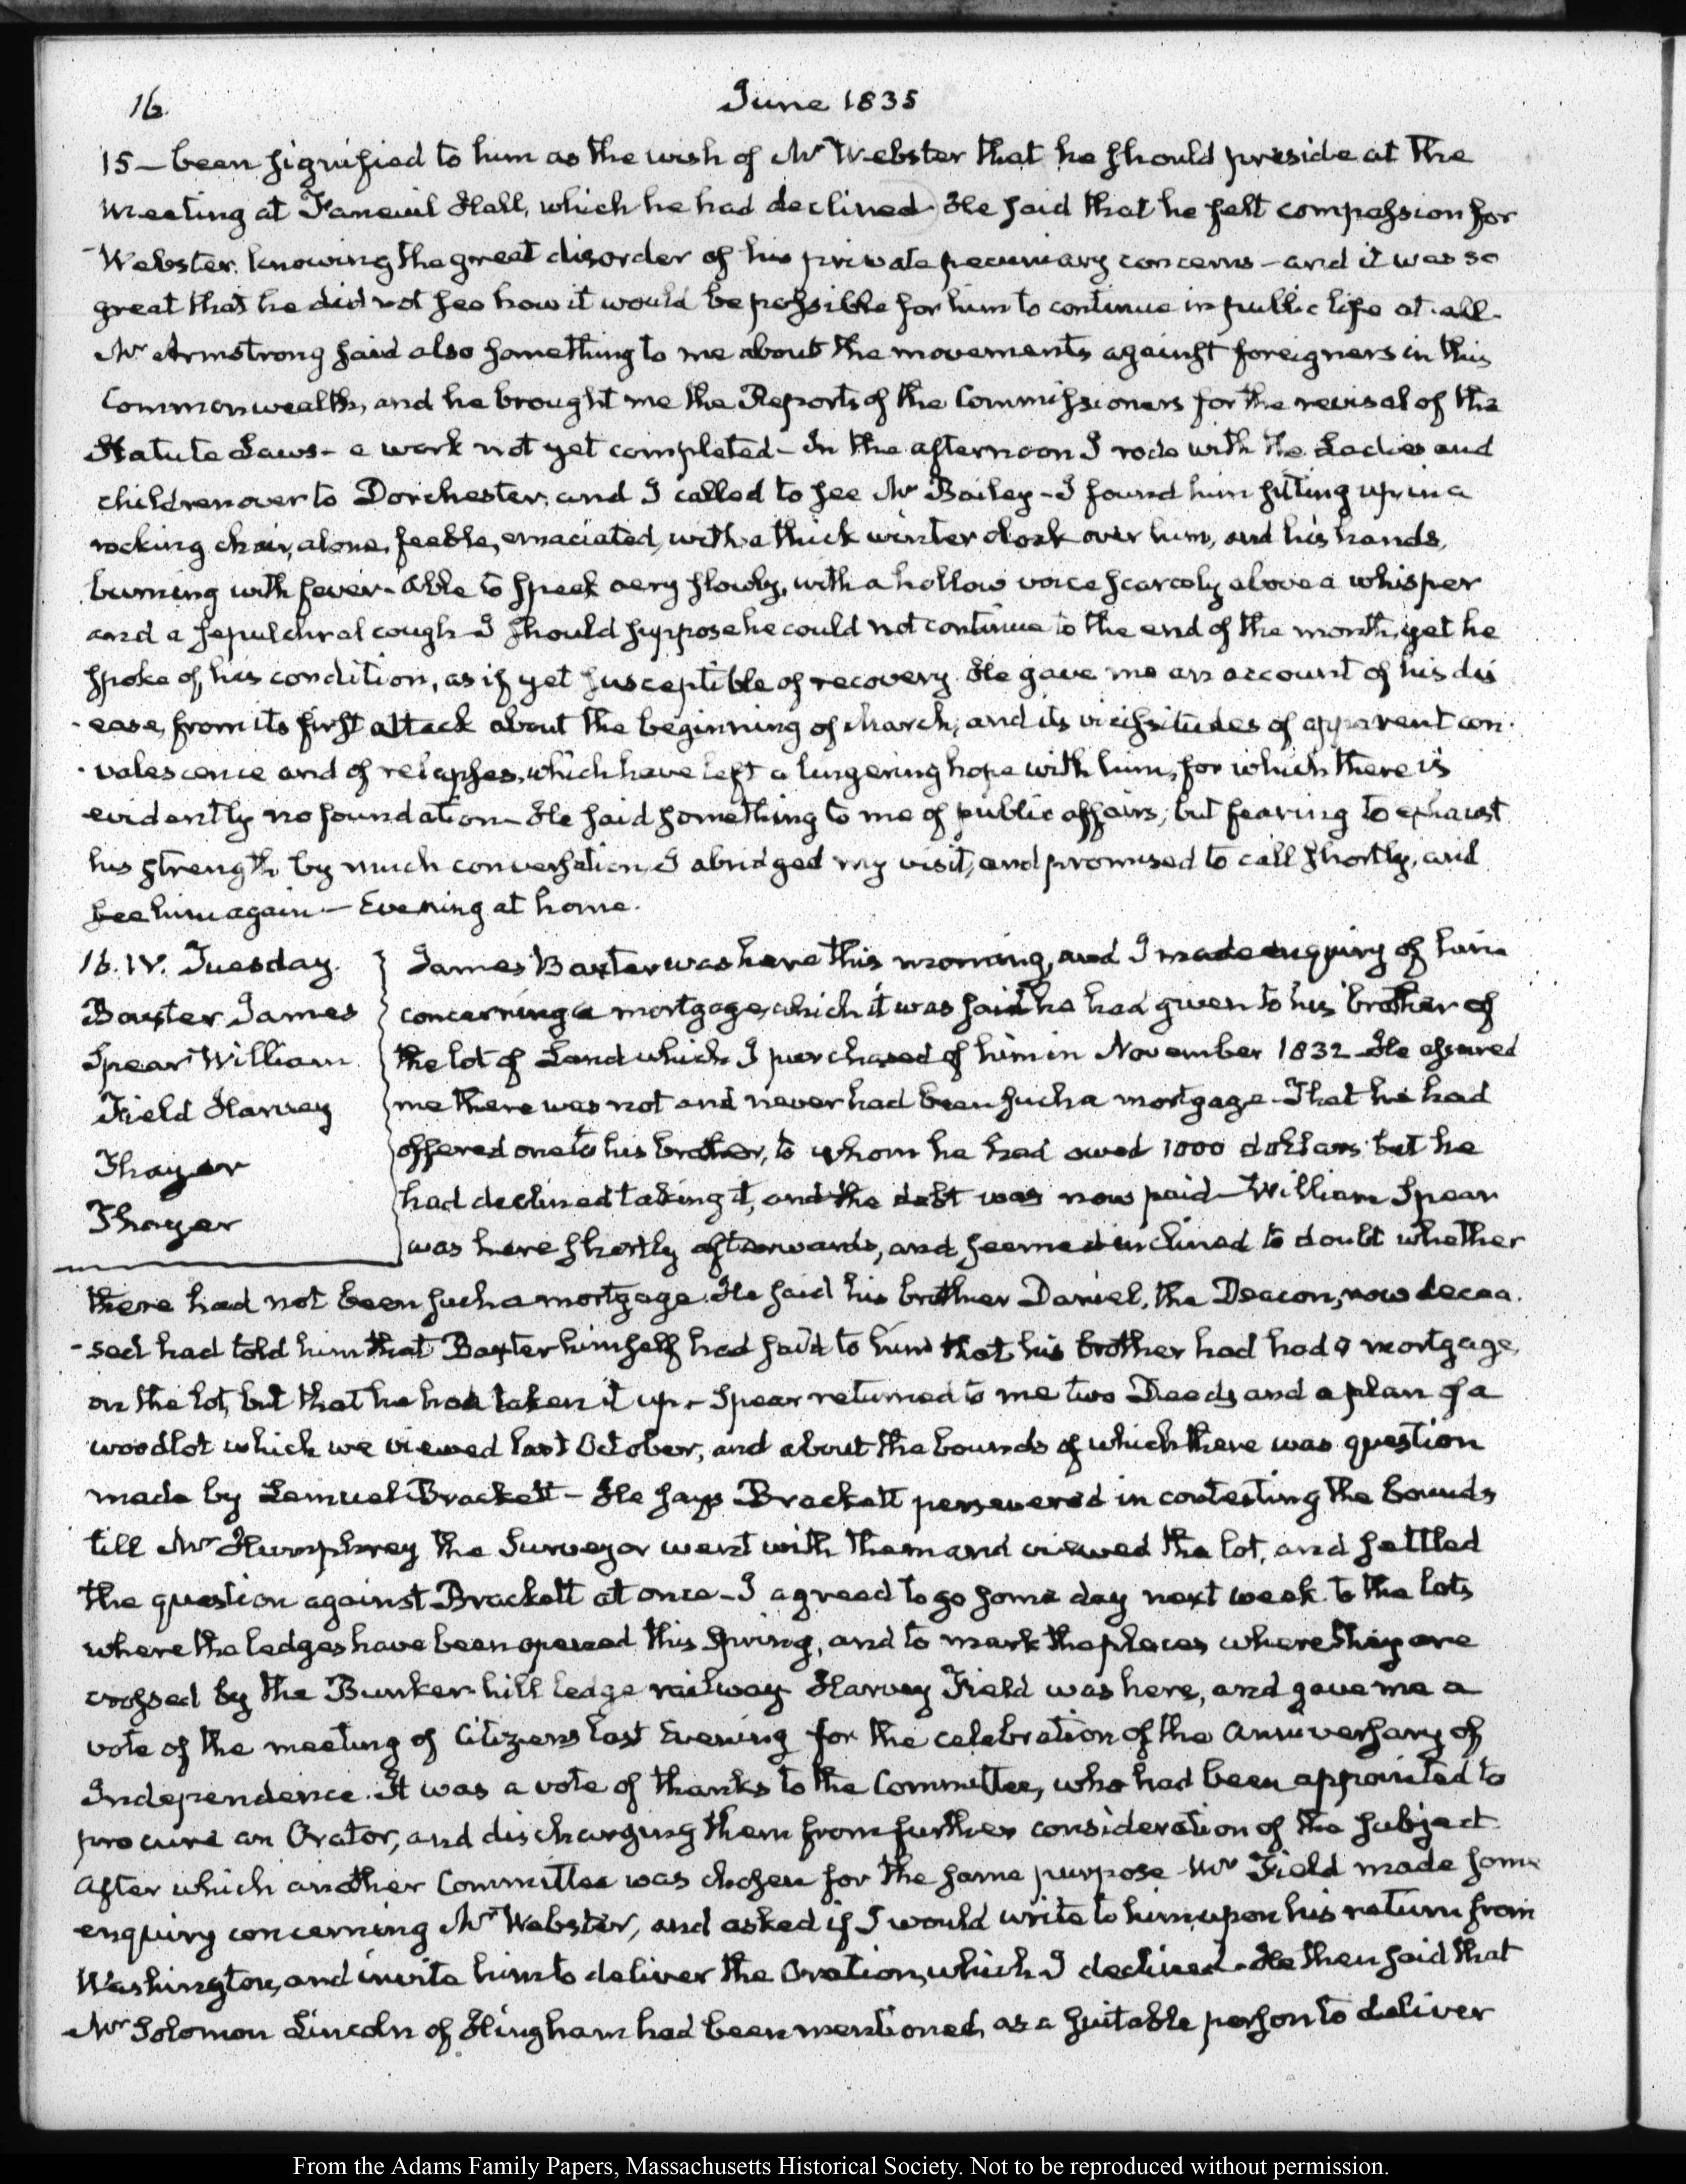 16.
June 1835
15 – been signified to him as the wish of Mr Webster that he should preside at the
Meeting at Faneuil Hall, which he had declined. He said that he felt compassion for
Webster, knowing the great disorder of his private pecuniary concerns – and it was so
great that he did not see how it would be possible for him to continue in public life at all –
Mr Armstrong said also something to me about the movements against foreigners in this
Commonwealth, and he brought me the Reports of the Commissioners for the revisal of the
Statute Laws – a work not yet completed – In the afternoon I rode with the Ladies and
children over to Dorchester, and I called to see Mr Bailey – I found him sitting up in a
rocking chair, alone, feeble, emaciated, with a thick winter cloak over him, and his hands,
burning with fever – able to speak very slowly, with a hollow voice scarcely above a whisper
and a sepulchral cough – I should suppose he could not continue to the end of the month, yet he
spoke of his condition, as if yet susceptible of recovery. He gave me an account of his dis
-ease, from its first attack about the beginning of March, and its vicissitudes of apparent con-
-valescence and of relapses, which have left a lingering hope with him, for which there is
evidently no foundation – He said something to me of public affairs; but fearing to exhaust
his strength by much conversation, I abridged my visit, and promised to call shortly, and
see him again – Evening at home.
16. IV. Tuesday.
Baxter James
Spear William
Field Harvey
Thayer
Thayer
James Baxter was here this morning, and I made enquiry of him
concerning a mortgage, which it was said he had given to his brother of
the lot of Land which I purchased of him in November 1832. He assured
me there was not and never had been such a mortgage – That he had
offered one to his brother, to whom he had owed 1000 dollars but he
had declined taking it, and the debt was now paid – William Spear
was here shortly afterwards, and seemed inclined to doubt whether
there had not been such a mortgage. He said his brother Daniel, the Deacon, now decea-
-sed had told him that Baxter himself had said to him that his brother had had a mortgage
on the lot, but that he had taken it up – Spear returned to me two Deeds and a plan of a
woodlot which we viewed last October, and about the bounds of which there was question
made by Lemuel Brackett – He says Brackett persevered in contesting the bounds
till Mr Humphrey the Surveyor went with them and viewed the lot, and settled
the question against Brackett at once – I agreed to go some day next week to the lots
where the ledges have been opened this Spring, and to mark the places where they are
crossed by the Bunker-hill ledge railway Harvey Field was here, and gave me a
vote of the meeting of Citizens last Evening for the celebration of the Anniversary of
Independence. It was a vote of thanks to the Committee, who had been appointed to
procure an Orator, and discharging them from further consideration of the subject
After which another Committee was chosen for the same purpose – Mr Field made some
enquiry concerning Mr Webster, and asked if I would write to him upon his return from
Washington, and invite him to deliver the Oration, which I declined – He then said that
Mr Solomon Lincoln of Hingham had been mentioned as a suitable person to deliver
From the Adams Family Papers, Massachusetts Historical Society. Not to be reproduced without permission.